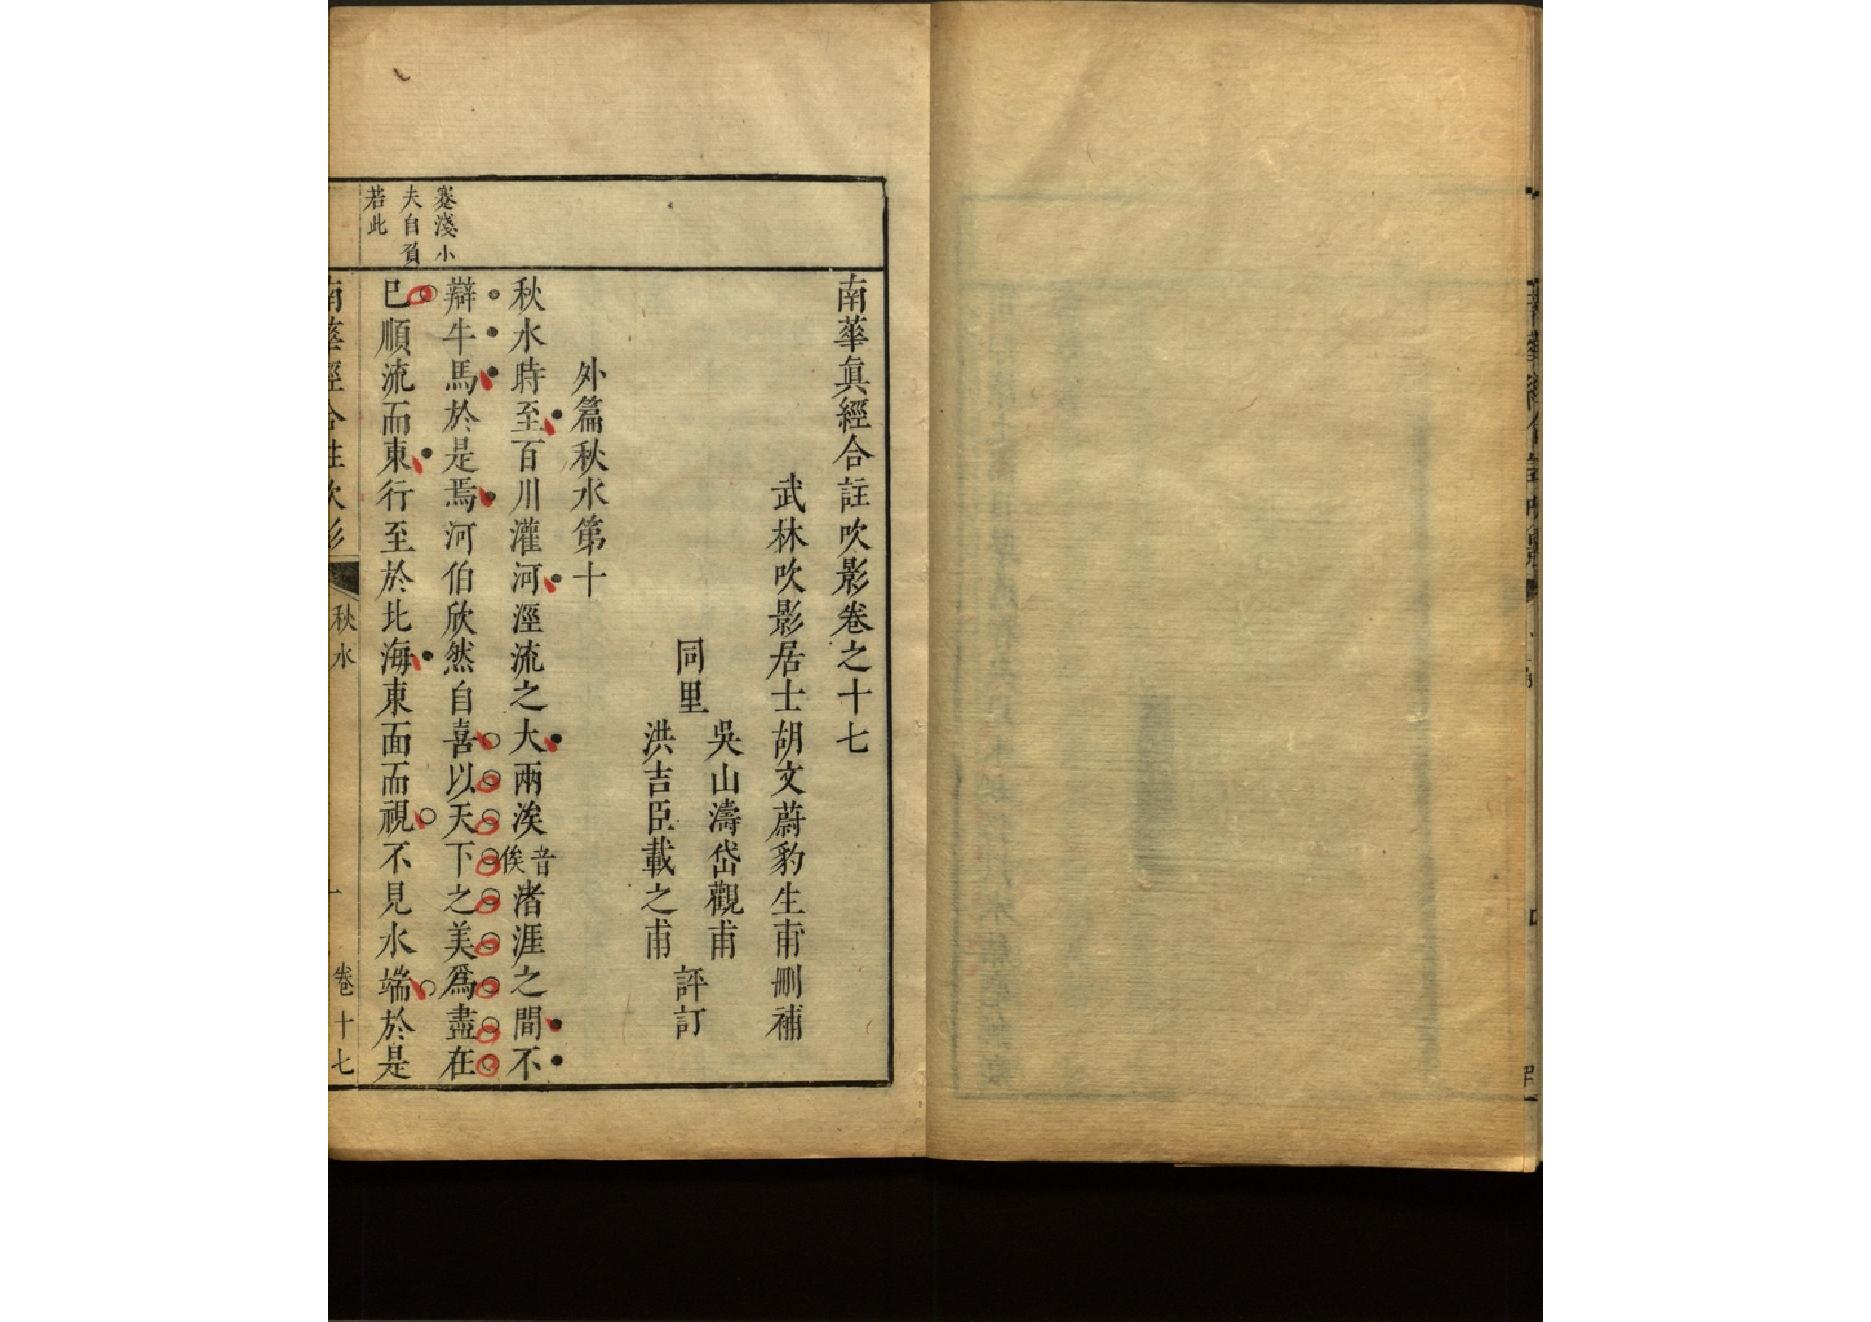 南華真經合註吹影卷之十七
武林吹影居士胡文蔚豹生甫刪補
吳山濤岱觀甫
同里
洪吉臣載之甫
評訂
外篇秋水第十
秋水時至百川灌河涇流之大兩涘音俟渚涯之間不
辯牛馬於是焉河伯欣然自喜以天下之美為盡在
己順流而東行至於北海東面而視不見水端於是
蹇淺小
夫自負
若此
南華經合註吹影
秋水
卷十七